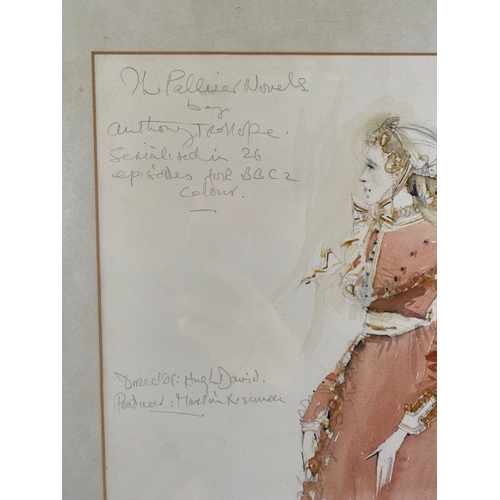 The Palliser Novels
by
Anthony Trollope.
Serialised in 26
episodes for BBC2
Colour.
Director: Hugh David.
Producer: Martin Lisemore